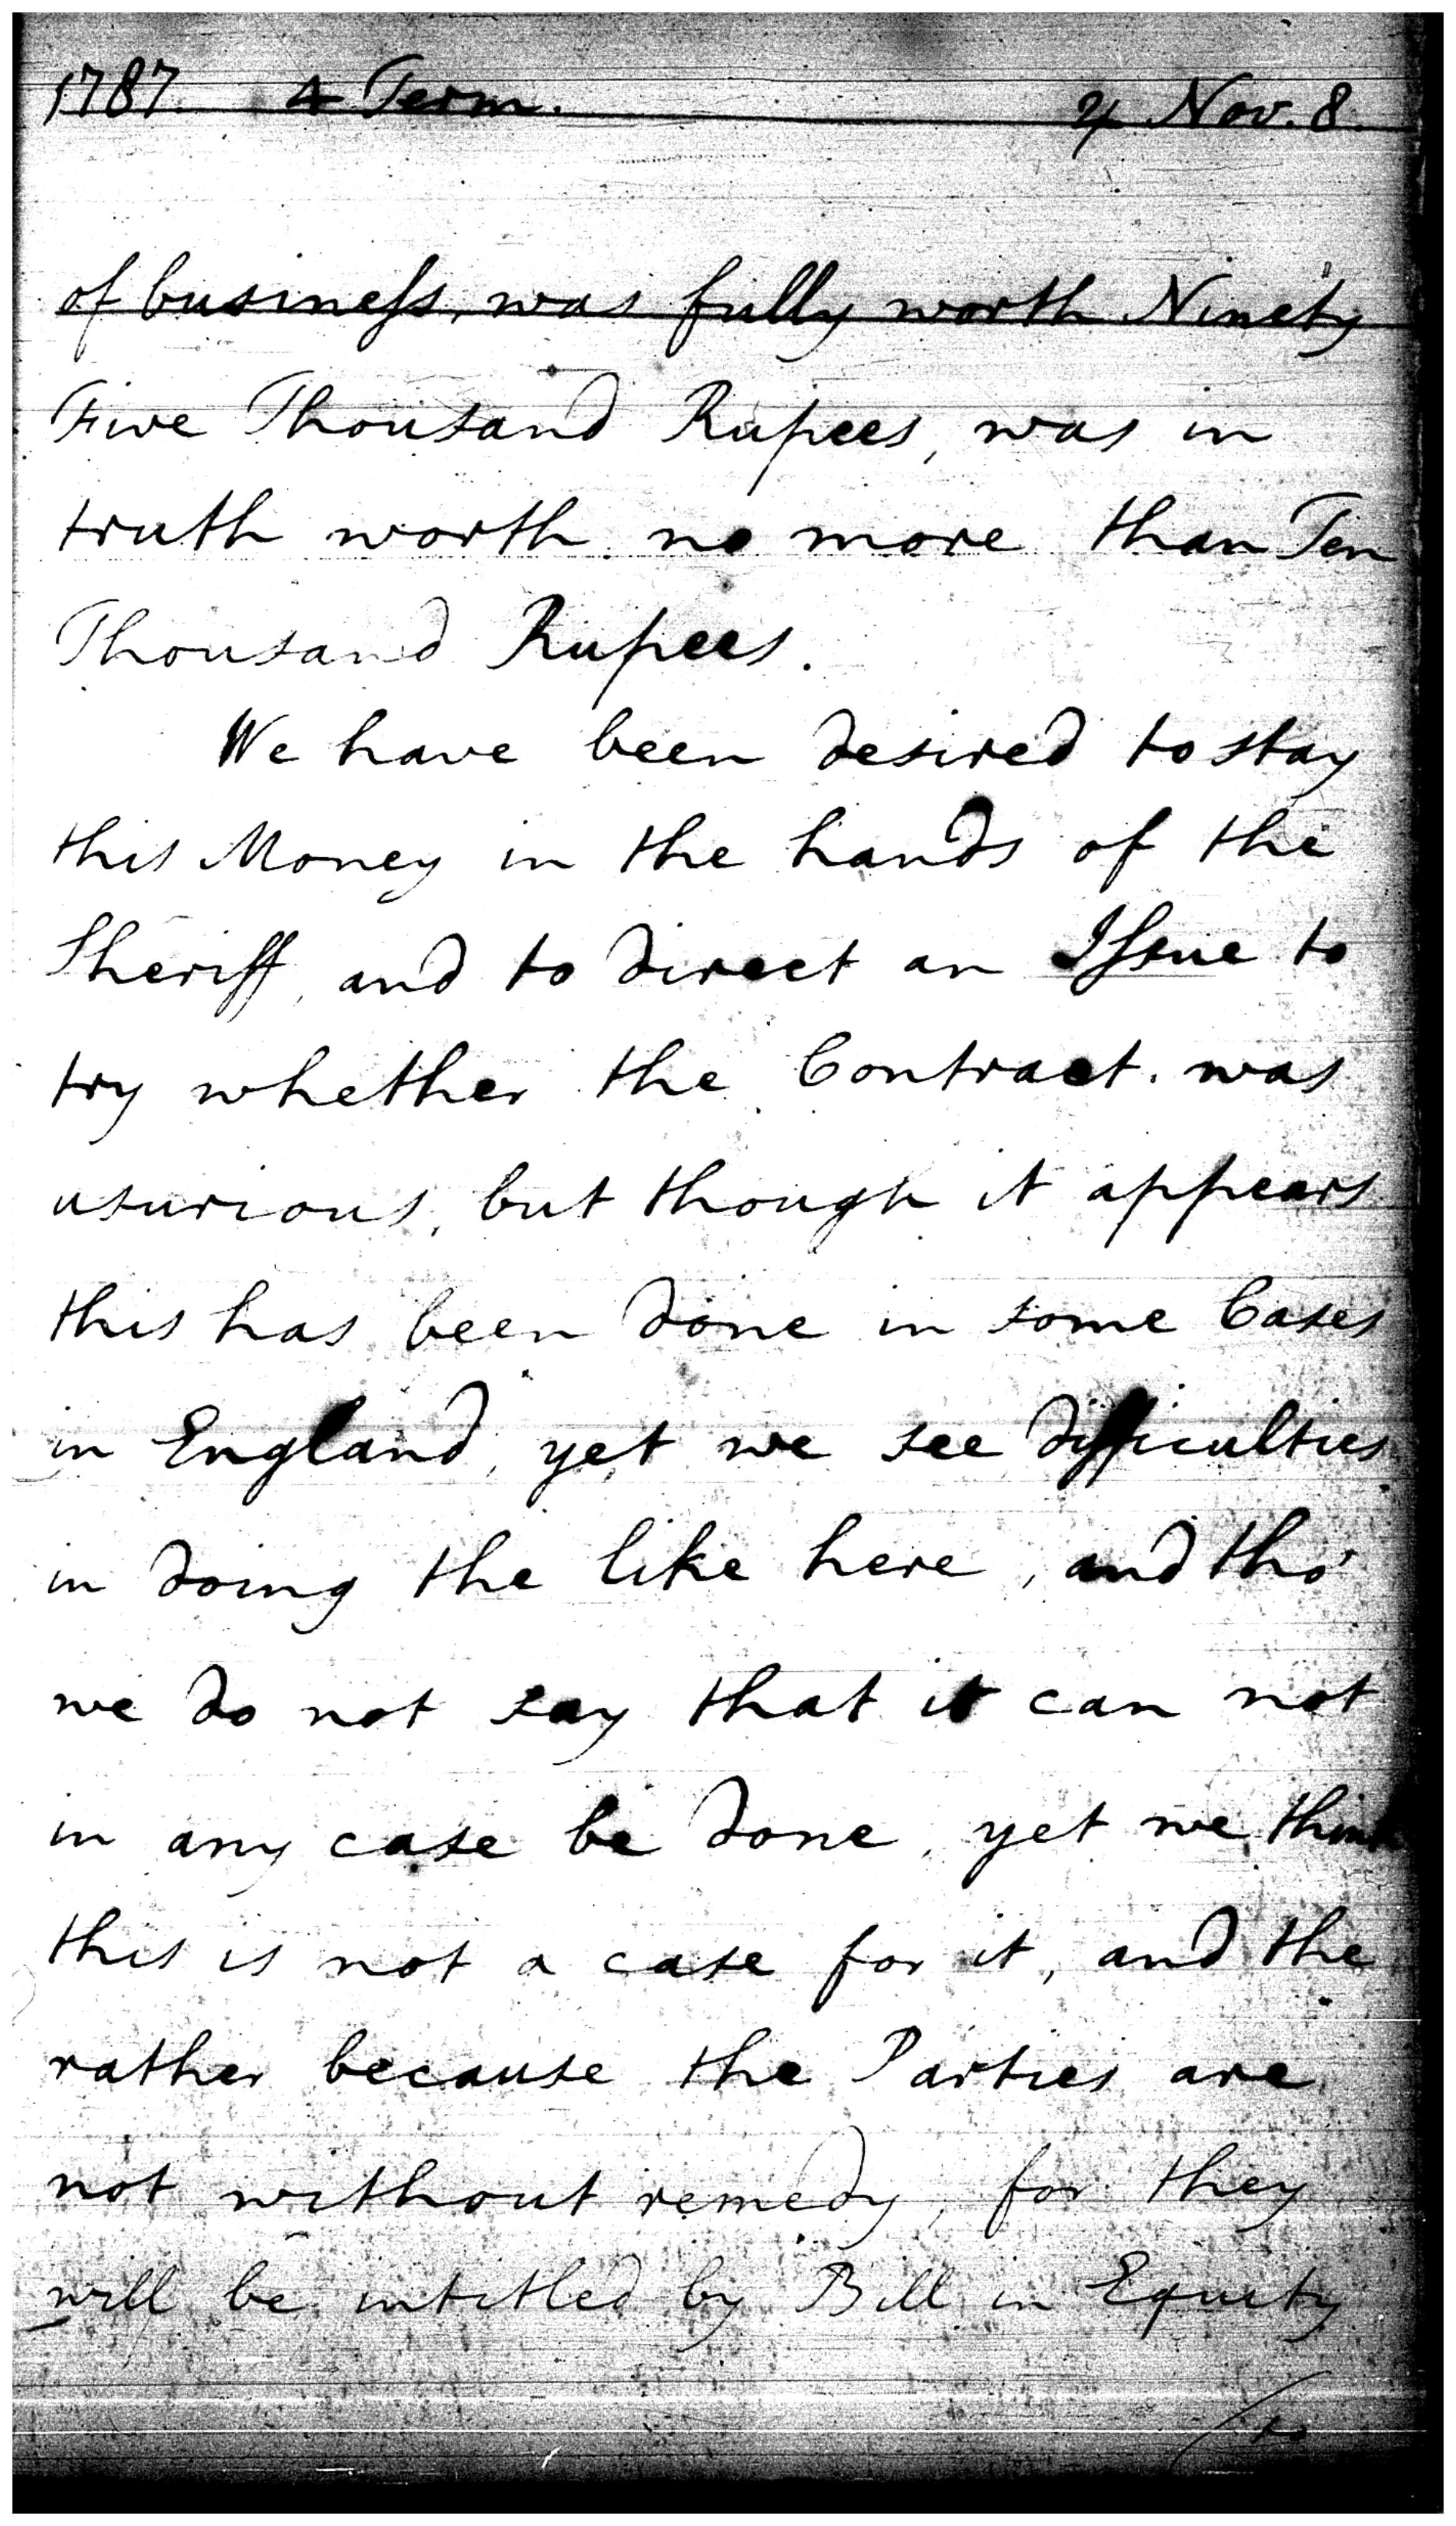 1787. 4 Term. ♃ Nov. 8.
of business, was fully worth Ninety
Five Thousand Rupees, was in
truth worth no more than Ten
Thousand Rupees.
We have been desired to stay
this Money in the hands of the
Sheriff, and to direct an Issue to
try whether the Contract was
usurious, but though it appears
this has been done in some Cases
in England, yet we see difficulties
in doing the like here, and tho'
we do not say that it can not
in any case be done, yet we think
this is not a case for it, and the
rather because the Parties are
not without remedy, for they
will be intitled by Bill in Equity
/to